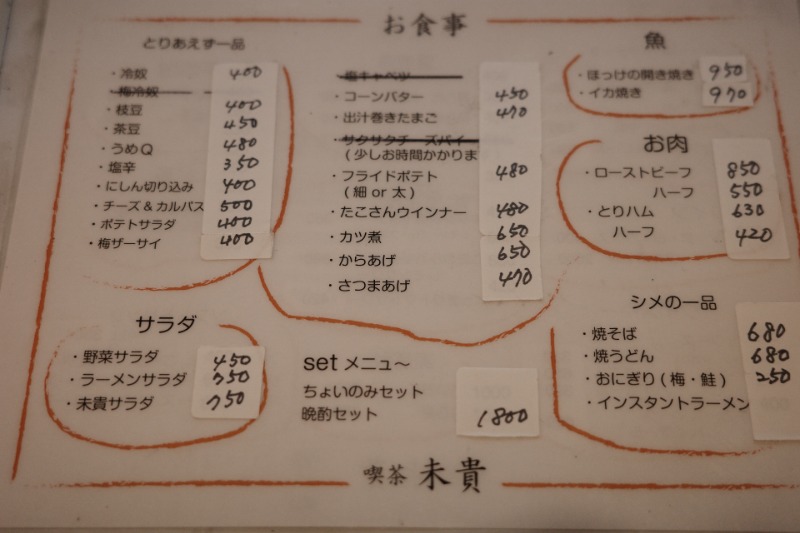 お食事
とりあえず一品
・冷奴 400
・梅冷奴
・枝豆 400
・茶豆 450
・うめQ 480
・塩辛 350
・にしん切り込み 400
・チーズ&カルパス 500
・ポテトサラダ 400
・梅ザーサイ 400
・塩キャベツ
・コーンバター 450
・出汁巻きたまご 470
・サクサクチーズパイ
(少しお時間かかりま
・フライドポテト 480
(細 or 太)
・たこさんウインナー 480
・カツ煮 650
・からあげ 650
・さつまあげ 470
魚
・ほっけの開き焼き 950
・イカ焼き 970
お肉
・ローストビーフ 850
ハーフ 550
・とりハム 630
ハーフ 420
サラダ
・野菜サラダ 450
・ラーメンサラダ 750
・未貴サラダ 750
set メニュ〜
ちょいのみセット
晩酌セット 1800
シメの一品
・焼そば 680
・焼うどん 680
・おにぎり(梅・鮭) 250
・インスタントラーメン
喫茶 未貴